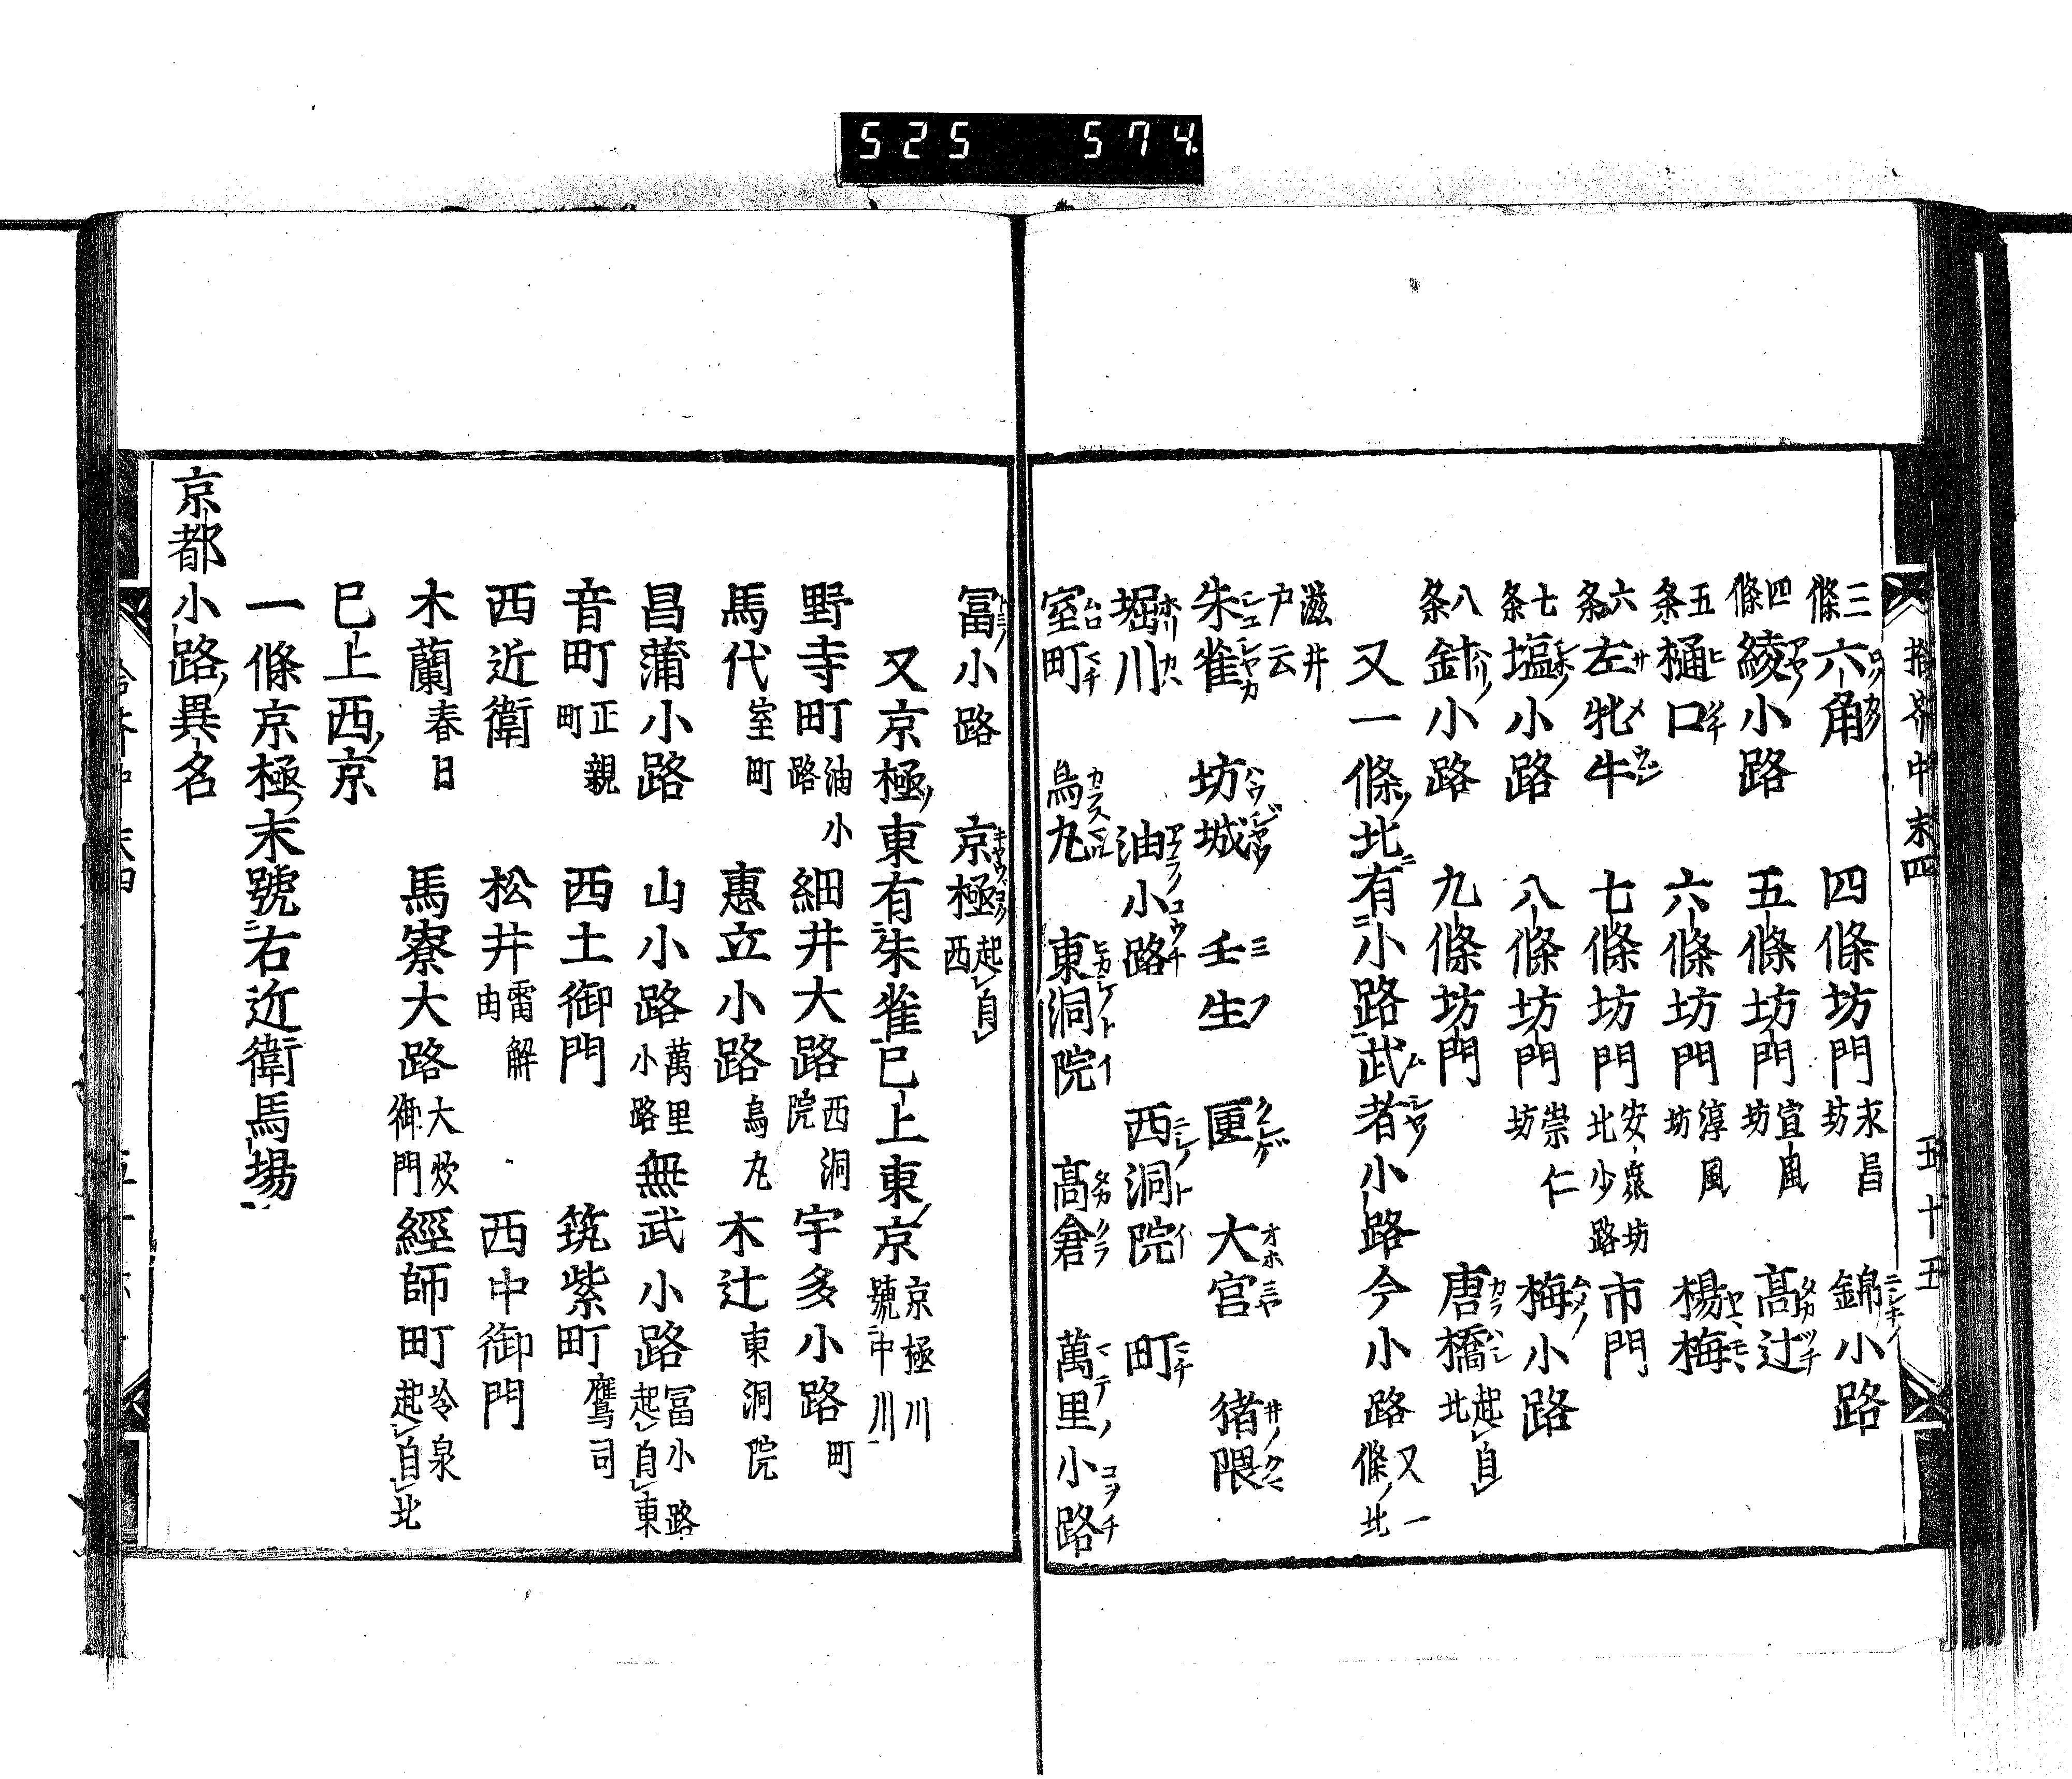 525 574
拾芥中末四 五十五
三條 六角 四條坊門 永昌坊 錦小路
四條 綾小路 五條坊門 宣風坊 髙辻
五条 樋口 六條坊門 淳風坊 楊梅
六条 左牝牛 七條坊門 安衆坊北少路 市門
七条 塩小路 八條坊門 崇仁坊 梅小路
八条 針小路 九條坊門 唐橋 起自北
又一條北有小路武者小路今小路 又一條ノ北
滋井戸云
朱雀 坊城 壬生 匣 大宮 猪隈
堀川 油小路 西洞院 町
室町 烏丸 東洞院 髙倉 萬里小路
冨小路 京極 起自西
又京極ノ東有朱雀已上東京 京極川號中川
野寺町 油小路 細井大路 西洞院 宇多小路 町
馬代 室町 惠立小路 烏丸 木辻 東洞院
昌蒲小路 山小路 萬里小路 無武小路 冨小路起自東
音町 正親町 西土御門 筑紫町 鷹司
西近衛 松井 雷解由 西中御門
木蘭 春日 馬寮大路 大炊御門 經師町 冷泉起自北
已上西京
一條京極ノ末號右近衛馬場
京都小路ノ異名